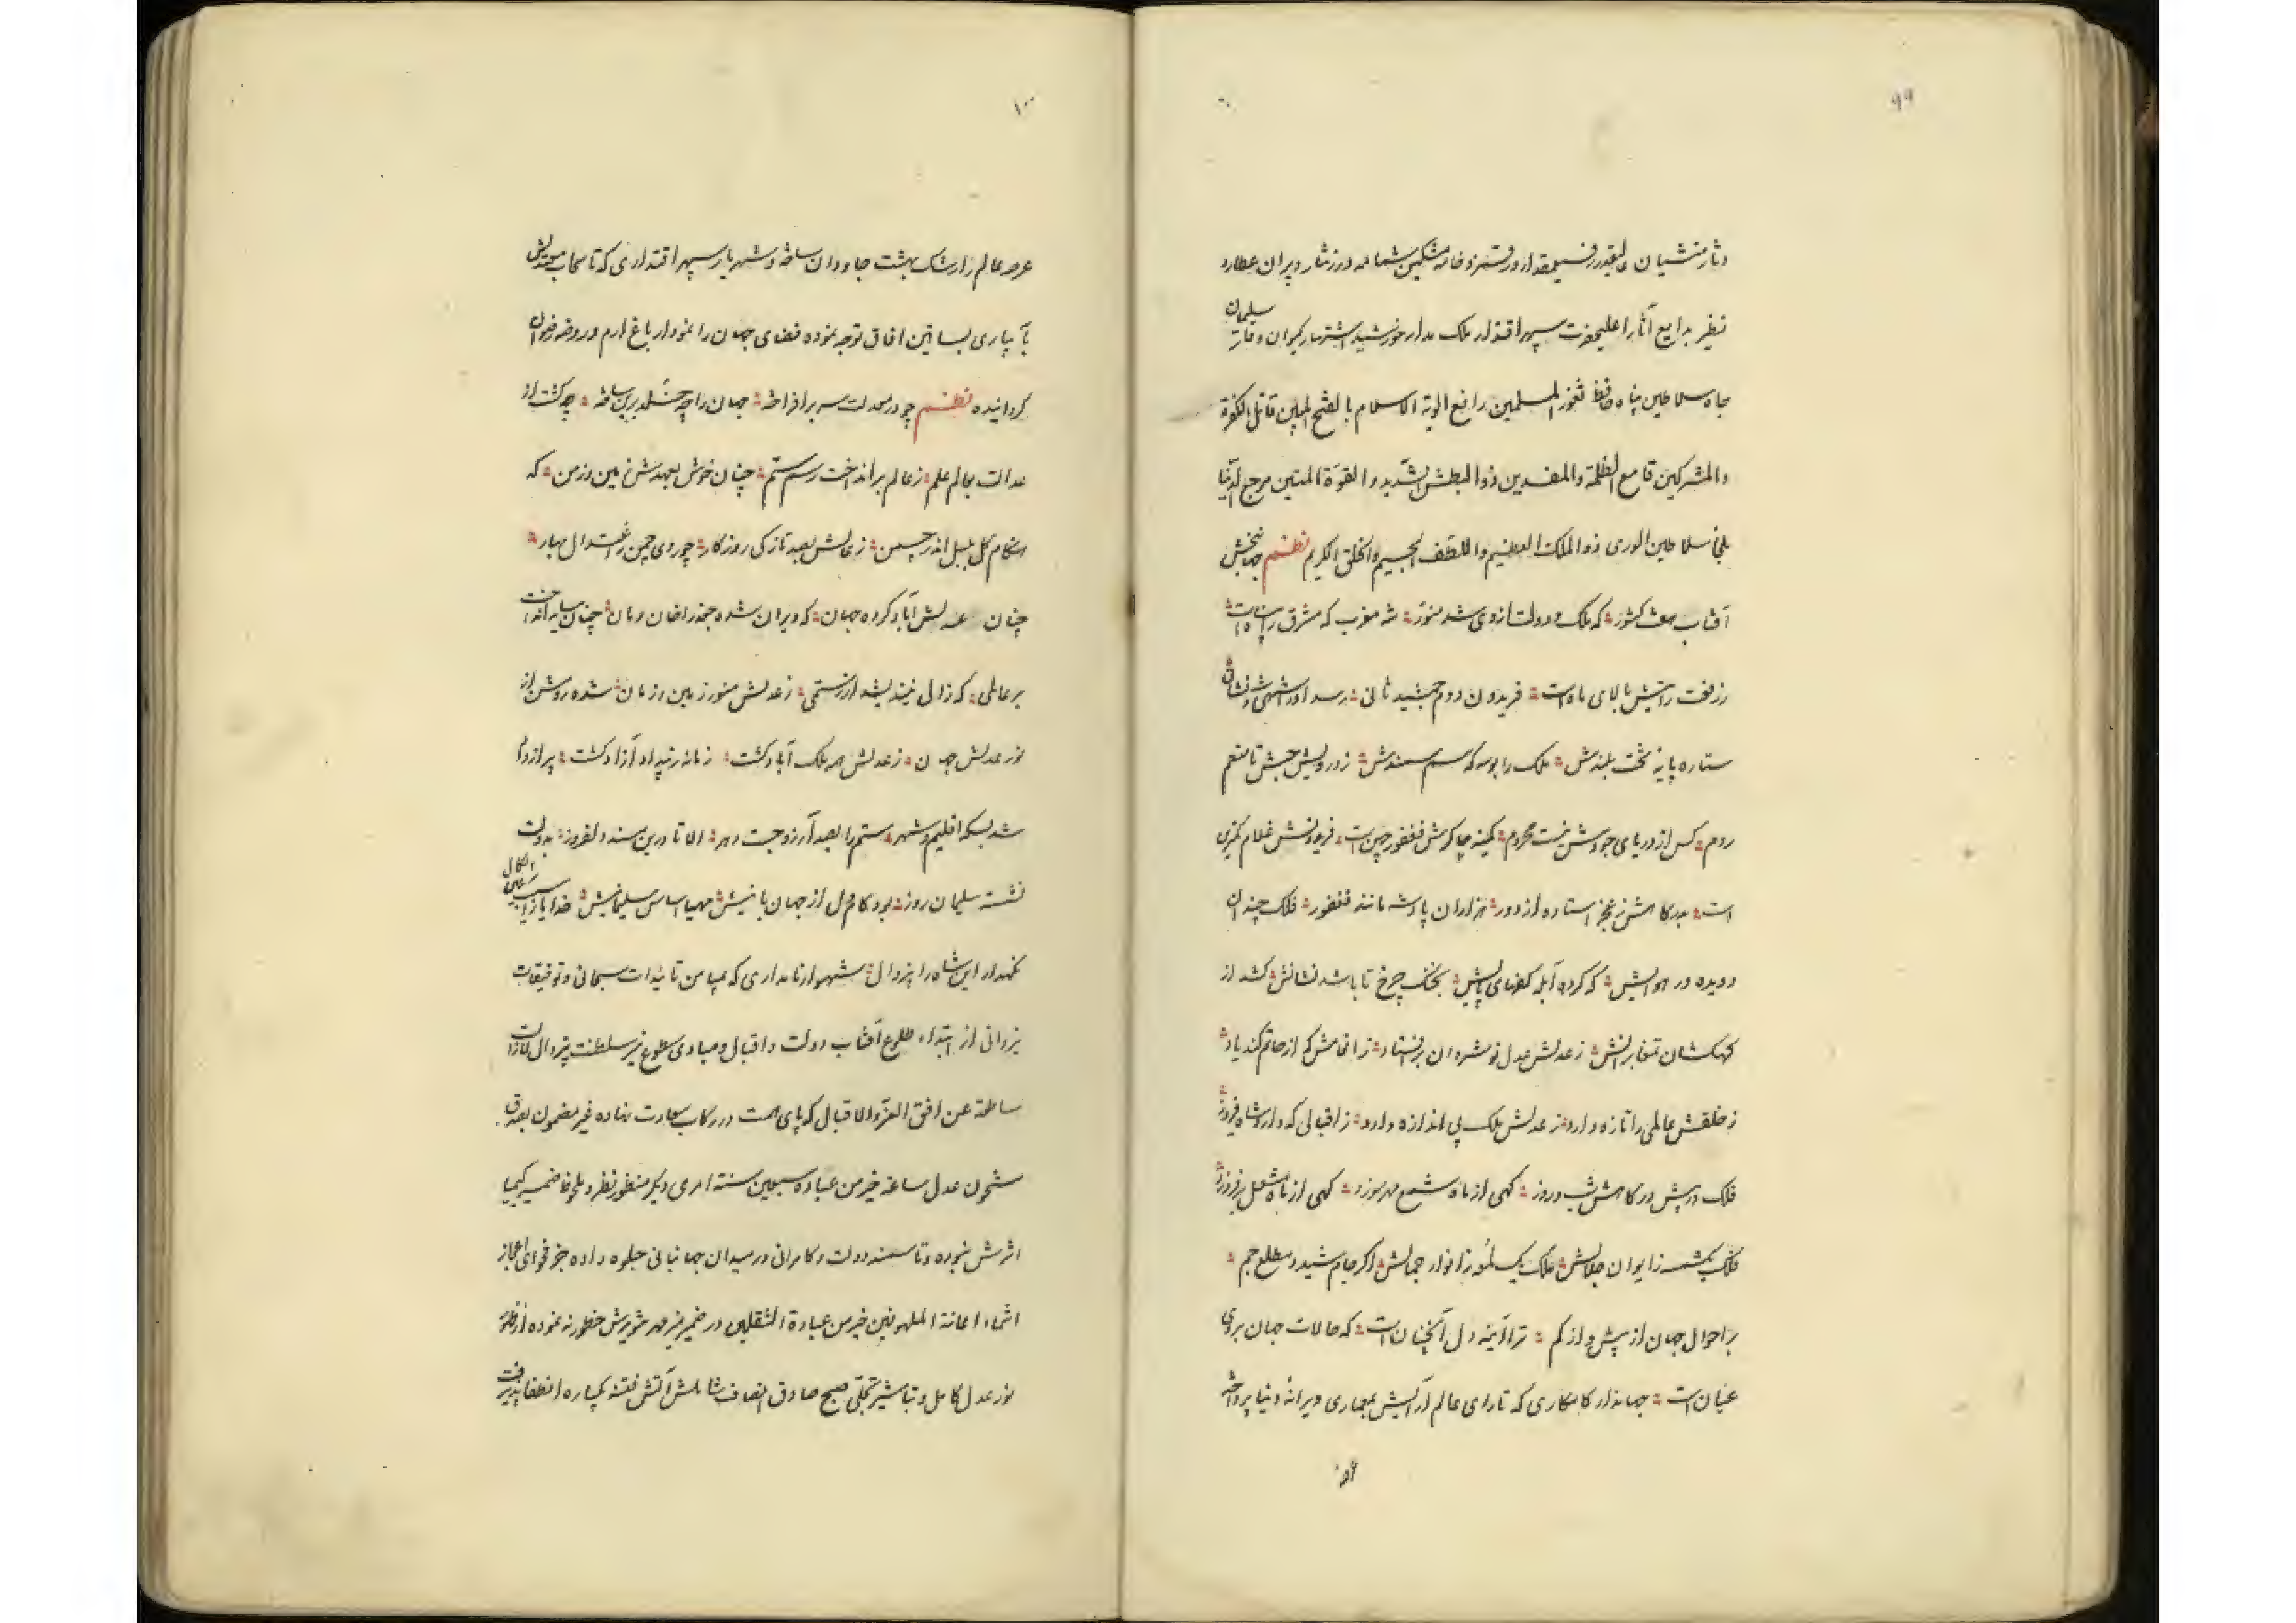 ۹۹
و نثار منشیان عالیقدر فسیمقدار و رقمزد خامه مشکین شمامه درر نثار دبیران عطارد
نظیر بدایع آثار اعلیحضرت سپهر اقتدار ملک مدار خورشید اشتهار کیوان وقار سلیمان
جاه سلاطین پناه حافظ ثغور المسلمین رافع الویة الاسلام بالفتح المبین قاتل الکفرة
والمشرکین قامع الظلمة والمفسدین ذو البطش الشدید و القوّة المتین مرجع الدنیا
ملجأ سلاطین الوری ذو الملک العظیم و اللطف الجسیم و الخلق الکریم نظم جهانبخش
آفتاب هفت کشور که ملک و دولت ازوی شد منوّر شه مغرب که مشرق را پناه است
ز رفعت رایتش بالای ماه است فریدون دوم جمشید ثانی رسد او را شهی و شه نشانی
ستاره پایه تخت بلندش ملک را بوسه که سم سمندش ز درویش حبش تا منعم
روم کس از دریای جودش نیست محروم کمینه چاکرش فغفور چین است فریدونش غلام کمترین
است بدرگاهش ز عجز استاده از دور هزاران پادشه مانند فغفور فلک چندان
دویده در هوایش که کرده آبله کفهای پایش بخنک چرخ تا باشد نشانش کشد از
کهکشان تمغا برانش ز عدلش عدل نوشروان بر افتاد ز انعامش که از حاتم کند یاد
ز خلقش عالمی را تازه دارد ز عدلش ملک بی اندازه دارد ز اقبالی که دارد شاه فیروز
فلک در پیش درگاهش شب و روز گهی از ماه شمع مهر سوزد گهی از ماه مشعل برفروزد
فلک یکشمسه ز ایوان جلالش ملک یک لمعه ز انوار جمالش اگر جام شیدی مطلع جم
بر احوال جهان از بیش و از کم ترا آیینه دل آنچنان است که حالات جهان بروی
عیان است جهاندار کامکاری که تا رای عالم آرایش بمعماری ویرانه دنیا پرداخته
۱۰۰
عرصه عالم را رشک بهشت جاودان ساخته و شهریار سپهر اقتداری که تا سحاب
بآبیاری بساتین آفاق توجه نموده فضای جهان را نمودار باغ ارم و روضه رضوان
گردانیده نظم چو در معدلت سر برافراخته جهان را چو خلد برین ساخته چو گشت از
عدالت بعالم علم ز عالم برانداخت رسم ستم چنان خوش بعهدش زمین و زمن که
هنگام گل بلبل اندر چمن ز عدلش بصد تازگی روزگار چو روی چمن ز اعتدال بهار
چنان عدلش آباد کرده جهان که ویران شده جغد را خان و مان چنان سایه انداخت
بر عالمی که زالی نیندیشد از رستمی ز عدلش منور زمین و زمان شده روشن از
نور عدلش جهان ز عدلش همه ملک آباد گشت زمانه ز بیداد آزاد گشت پر از داد
شد بسکه اقلیم و شهر ستم را بصد آرزو جست دهر الا تا درین مسند دلفروز بدولت
نشسته سلیمان روز بود کام دل از جهان بانیش مهیا اساس سلیمانیش خدایا ز آسیب عین الکمال
نگهدار این شاه را بیزوال شهسوار نامداری که بمیامن تائیدات سبحانی و توفیقات
یزدانی از ابتداء طلوع آفتاب دولت و اقبال و مبادی سطوع نیر سلطنت بیزوال لا زالت
ساطعة عن افق العز والاقبال که پای همت در رکاب سعادت نهاده غیر مضمون بصدق
مشحون عدل ساعة خیر من عبادة سبعین سنة امری دیگر منظور نظر و ملحوظ ضمیر کیمیا
اثرش نبوده و تا سمند دولت و کامرانی در میدان جهانبانی جلوه داده جز فحوای اعجاز
انتماء اعانة الملهوفین خیر من عبادة الثقلین در ضمیر منیر مهر تنویرش خطور ننموده از
نور عدل کامل و تباشیر تجلی صبح صادق انصاف شاملش آتش فتنه یکباره انطفا پذیرفت